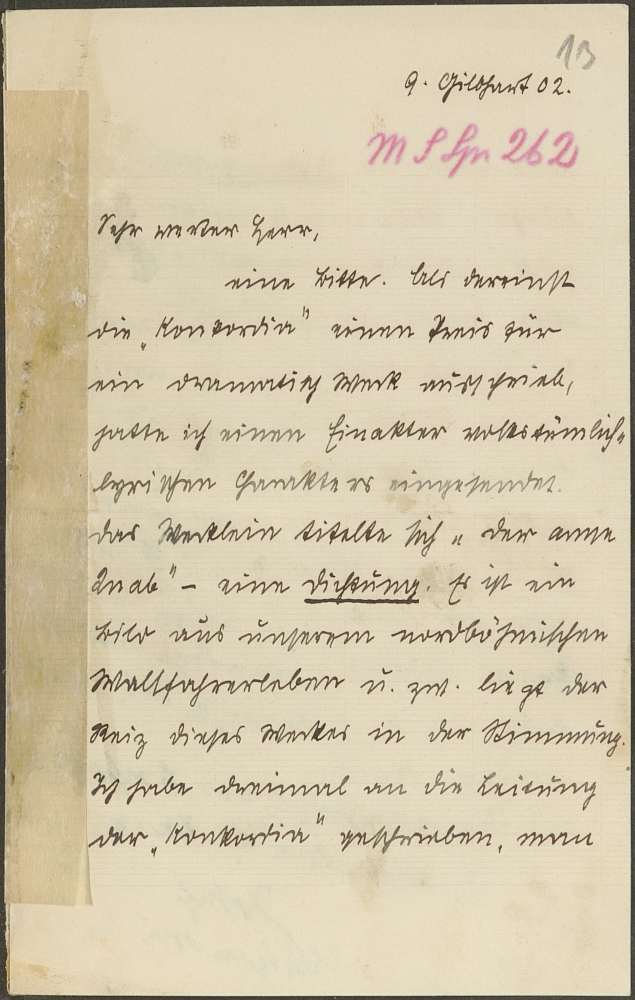 13
9. Gilbhart 02.
M S Spr 262
Sehr werter Herr,
eine Bitte. Als dereinst
die „Konkordia" einen Preis für
ein dramatisch Werk ausschrieb,
hatte ich einen Einakter volkstümlich-
lyrischen Charakters eingesendet.
Das Werklein titelte sich „der arme
Knab" – eine Dichtung. Es ist ein
Bild aus unserem nordböhmischen
Wallfahrerleben u. zw. liegt der
Reiz dieses Werkes in der Stimmung.
Ich habe dreimal an die Leitung
der „Konkordia" geschrieben, man